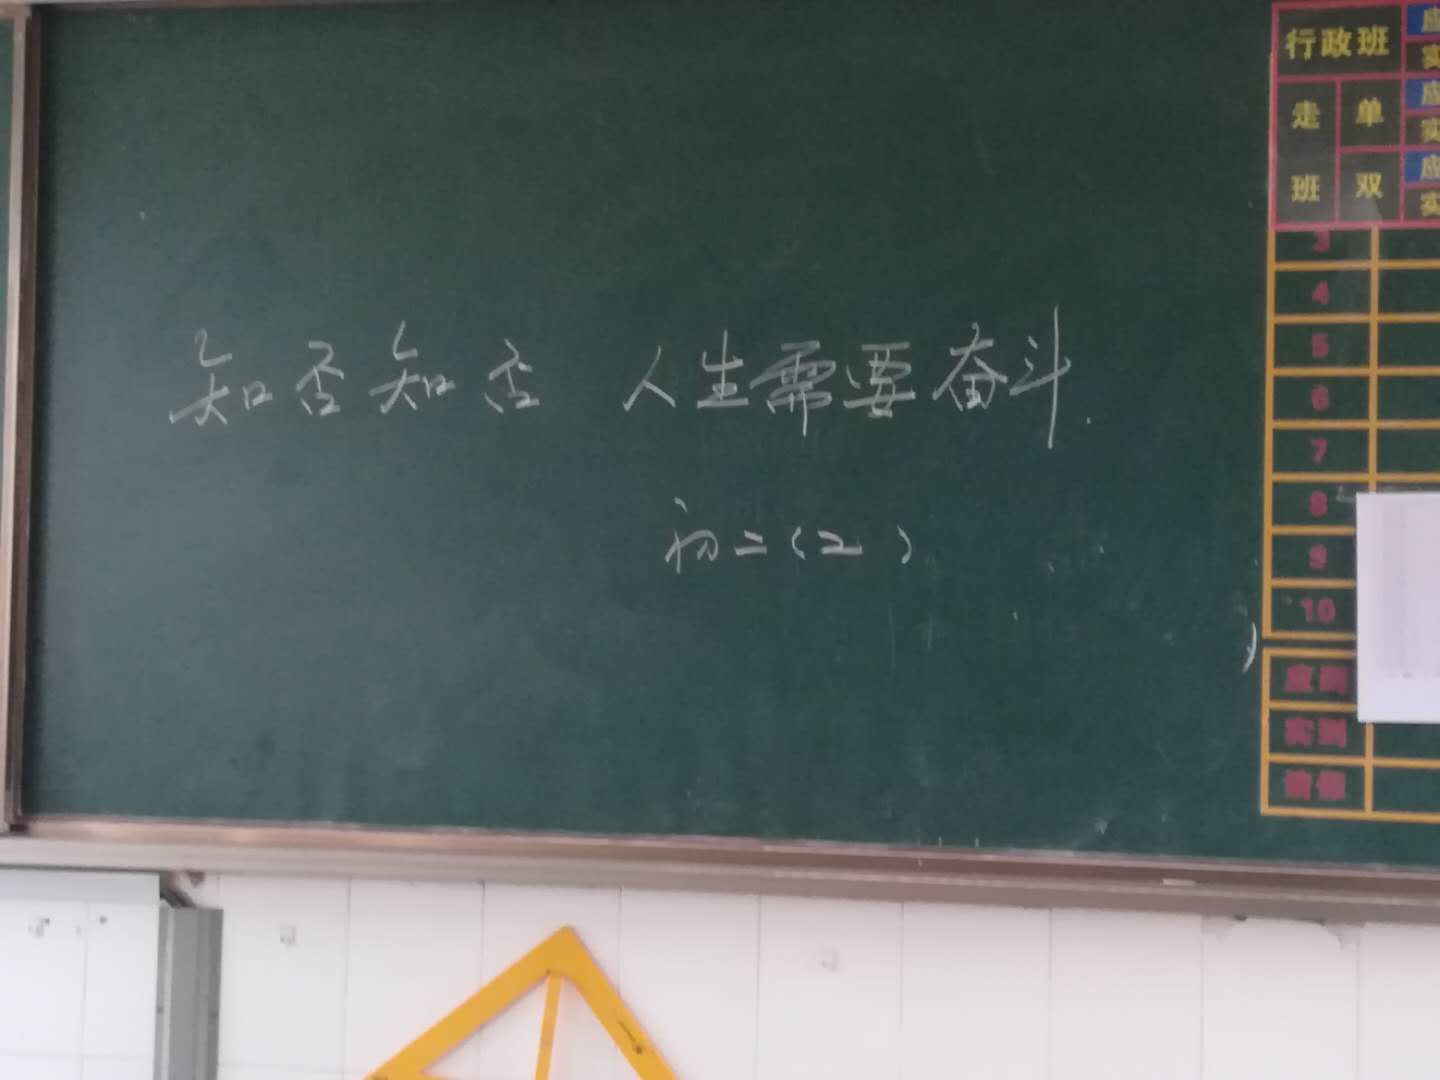 知否知否 人生需要奋斗.
初二(2)
行政班 应
实
走班 单 应
实
双 应
实
3
4
5
6
7
8
9
10
应到
实到
请假